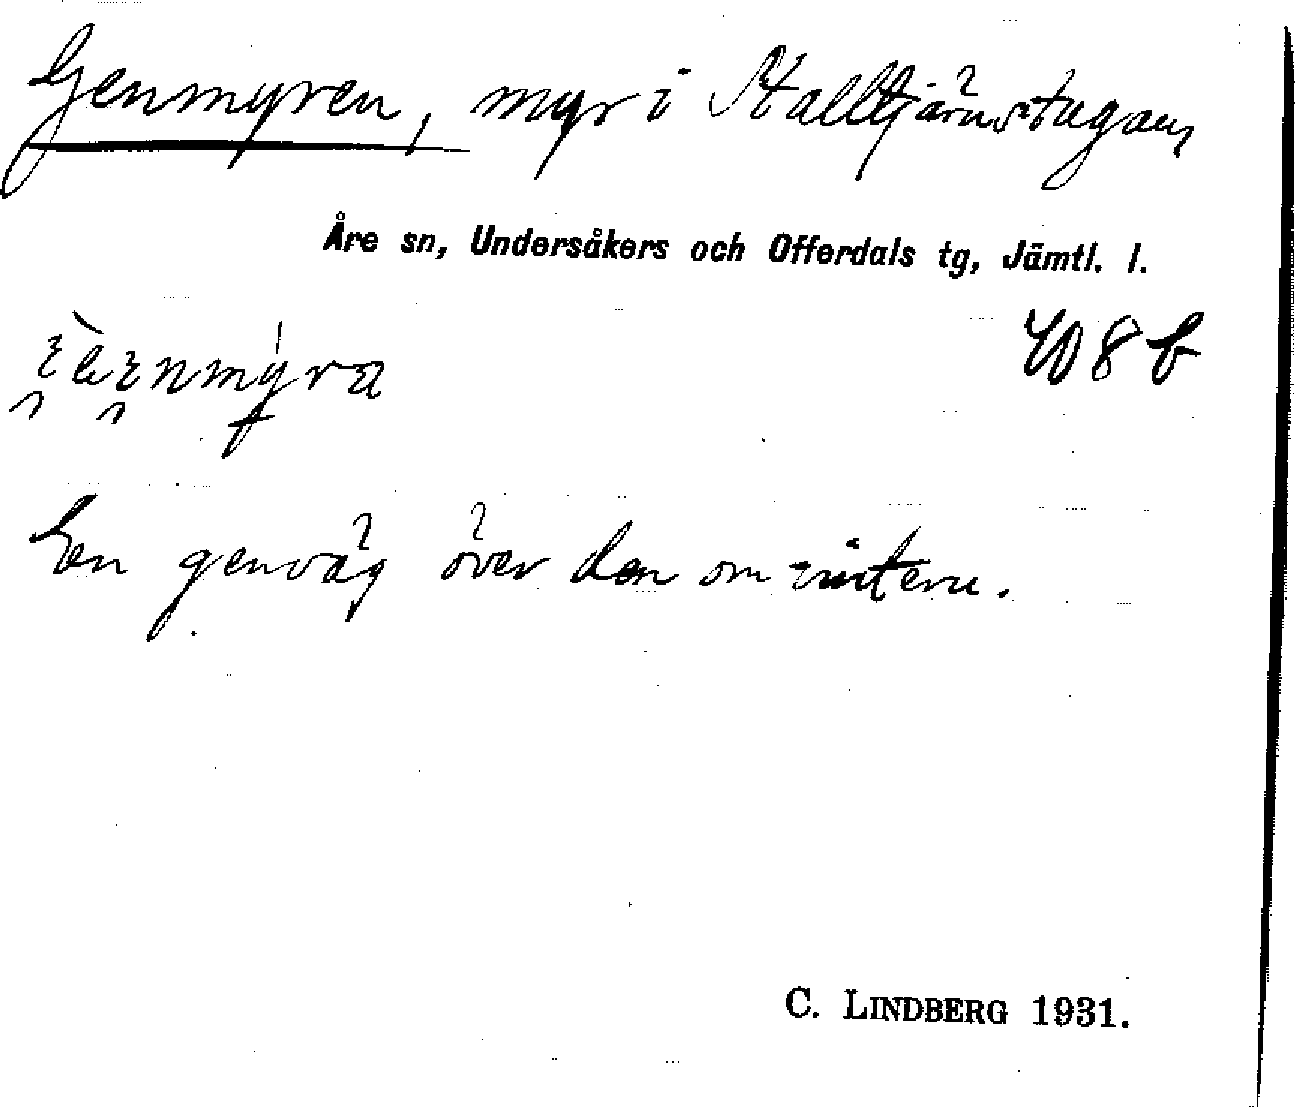 Genmyren, myr i Stalltjärnstugan,
Åre sn, Undersåkers och Offerdals tg, Jämtl. l.
408 b
En genväg över den om vintern.
C. LINDBERG 1931.